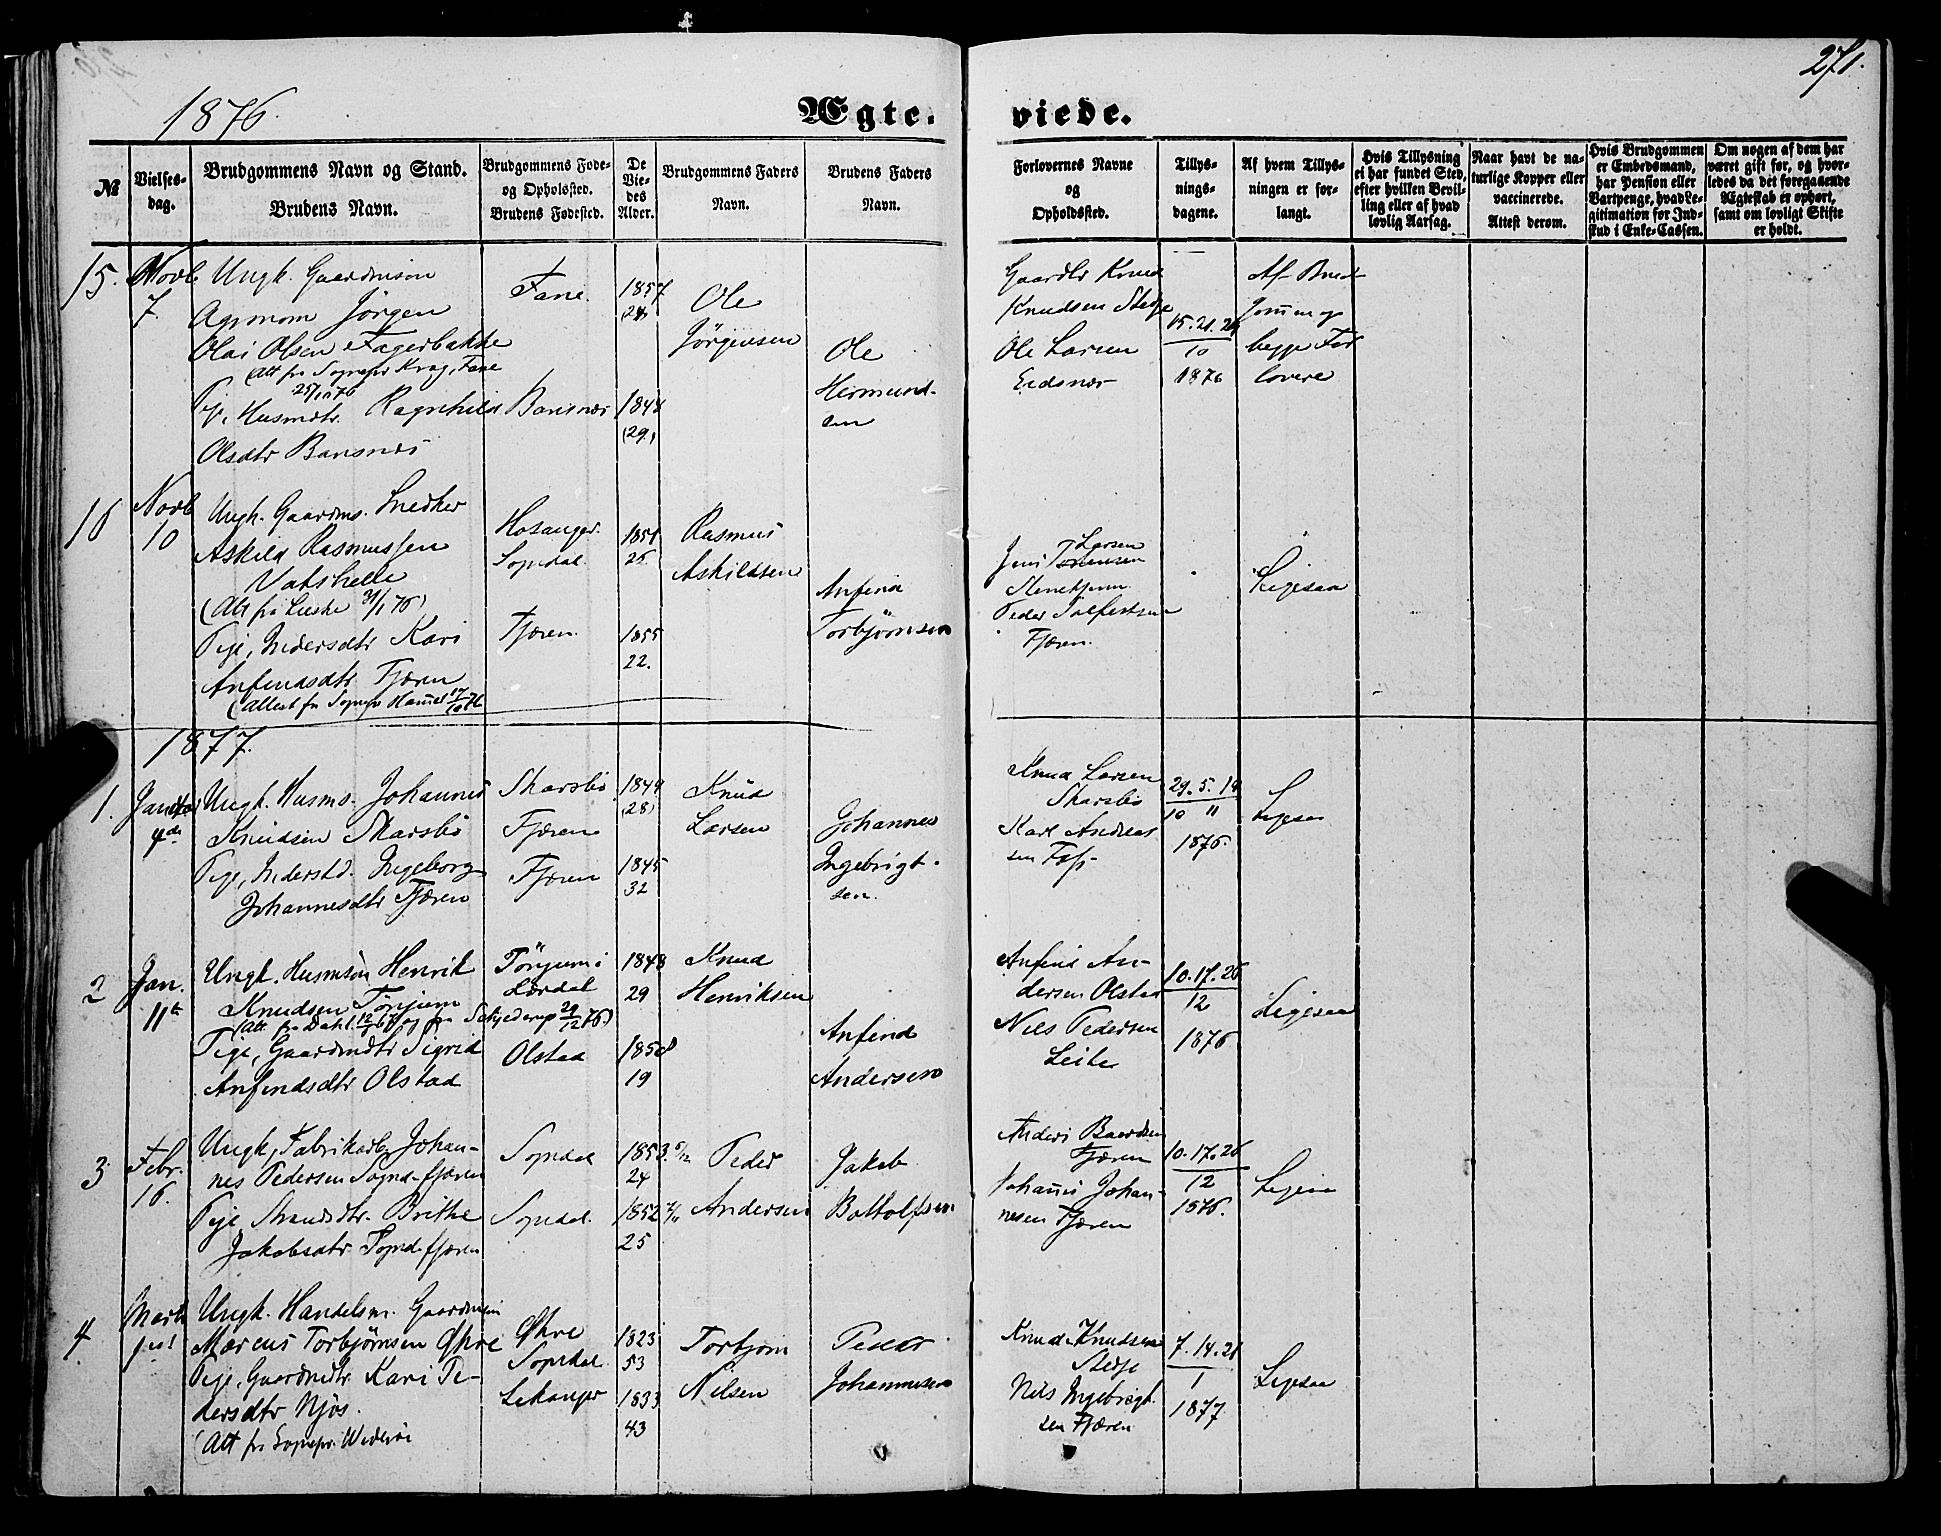 271.
1876.
Ægte- viede.
№
Vielses-
dag.
Brudgommens Navn og Stand.
Brudens Navn.
Brudgommens Føde-
og Opholdsted.
Brudens Fødested.
De
Vie-
des
Alder.
Brudgommens Faders
Navn.
Brudens Faders
Navn.
Forlovernes Navne
og
Opholdssted.
Tillys-
nings-
dagene.
Af hvem Tillys-
ningen er for-
langt.
Hvis Tillysning
ei har fundet Sted,
efter hvilken Bevil-
ling eller af hvad
lovlig Aarsag.
Naar havt de na-
turlige Kopper eller
vaccinerede.
Attest derom.
Hvis Brudgommen
er Embedsmand,
har Pension eller
Vartpenge, hvad Le-
gitimation for Ind-
skud i Enke-Cassen.
Om nogen af dem har
været gift før, og hvor-
ledes da det foregaaende
Ægteskab er ophørt,
samt om lovligt Skifte
er holdt.
15.
Novb
7.
Ungk. Gaardmsøn
Agronom Jörgen
Olai Olsen Fagerbakke
(Att fra Sognepr Krag, Fane
25/10 76
Pige, Husmdtr. Ragnhild
Olsdtr Barsnæs
Fane.
Barsnæs
1857
1848
(29)
Ole
Jörgensen
Ole
Hermund-
sen
Gaardbr Knud
Knudsen Stedje
Ole Larsen
Eidsnæs
15.21.
10
1876
Af Brud-
gom og
begge For
lovere
16
Novb
10
Ungk. Gaardms. Snedker
Askild Rasmussen
Vatshelle
Pige, Inderstdtr Kari
Anfindsdtr Fjæren
(Attest fra Sognepr
Hosanger
Sogndal
Fjæren
1851
25
1855
22.
Rasmus
Askildsen
Anfind
Torbjörnsen
Jens Larsen
Peder
Fjæren.
Ligesaa
1877.
1.
Januar
4de
Ungk. Husms. Johannes
Knudsen Skarsbö
Pige, Inderstd. Ingeborg
Johannesdtr Fjæren
Skarsbö
Fjæren
Fjæren
1849
(28)
1845
32
Knud
Larsen
Johannes
Ingebrigt-
sen.
Knud Larsen
Skarsbö
Karl Andreas
sen Foss
29.5.19
10 11
1876.
Ligesaa
2
Jan.
11te
Ungk. Husmsön Henrik
Knudsen Tönjum
(Att fra Dahl 12/ 67 og fra Schjederup 29/12 76)
Pige, Gaardmdtr Sigrid
Anfindsdtr Olstad
Tönjum i
Lærdal
Olstad
1848
29
1858
19
Knud
Henriksen
Anfind
Andersen
Anfind An-
dersen Olstad
Nils Pedersen
Leite
10.17.26
12
1876
Ligesaa
3
Febr.
16.
Ungk, Fabrikarb. Johan-
nes Pedersen Sogndalsfjæren
Pige Strandsdtr. Brithe
Jakobsdtr Sogndalsfjæren
Sogndal
Sogndal.
1853 5/12
24
1852
25
Peder
Andersen
Jakob
Bottolfsen
Anders Baardsen
Fjæren
Johannes Johan-
nesen Fjæren
10.17.26
12
1876.
Ligesaa
4
Marts
Ungk. Handelsm. Gaardmsön
Marcus Torbjørnsen Øhre
Pige, Gaardmdtr. Kari Pe-
dersdtr Njøs.
(Att fra Sognepr.
Øhre
Sogndal
Lekanger
1823
53
1833
43
Torbjørn
Nilsen
Peder
Johannesen
Knud Knudsen
Stedje
Nils Ingebrigt
sen Fjæren
7.14.21
1
1877
Ligesaa